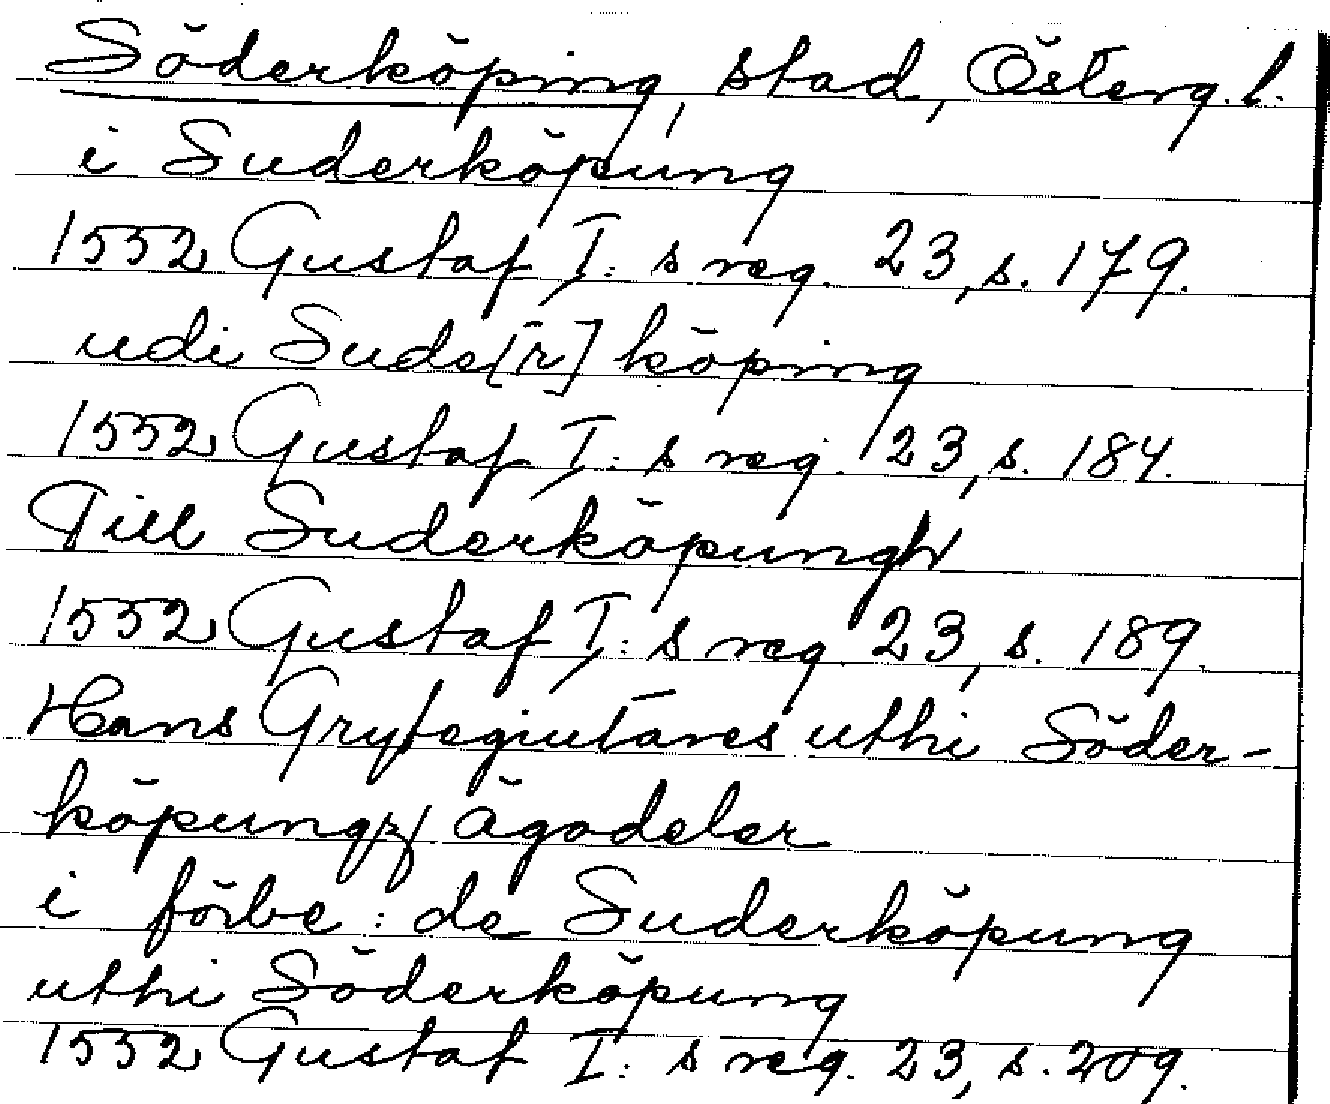 Söderköping, stad, Österg. l.
i Suderköpung
1552 Gustaf I: s reg. 23, s. 179.
udi Sude[r]köping
1552 Gustaf I: s reg. 23, s. 184.
Till Suderköpungh
1552 Gustaf I: s reg 23, s. 189.
Hans Grytegiutares uthi Söder-
köpungz ägodeler
i förbe: de Suderköpung
uthi Söderköpung
1552 Gustaf I: s reg. 23, s. 209.